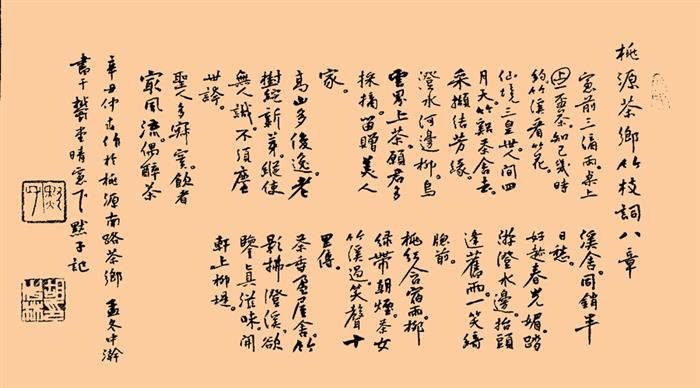 桃源茶鄉竹枝詞八章
窗前三滴雨。桌上
壺茶。知己幾時
約。竹溪看竹花。
仙境三皇世。人間四
月天。竹溪茶舍去。
采擷結芳緣。
澄水河邊柳。烏
雲界上茶。願君多
採摘。留贈美人
家。
高山多俊逸。老
樹綻新芽。縱使
無人識。不須塵
世誇。
聖人多寂寞。飲者
最風流。偶醉茶
溪舍。同銷半
日愁。
好趁春光媚。踏
游澄水邊。抬頭
逢舊雨。一笑綺
窗前。
桃紅含宿雨。柳
綠帶朝煙。茶女
竹溪過。笑聲十
里傳。
茶香盈屋舍。竹
影掃澄溪。欲
鑒真滋味。開
軒上柳堤。
辛丑仲作於桃源南路茶鄉 孟冬中澣
書于堂晴窗下 默子記